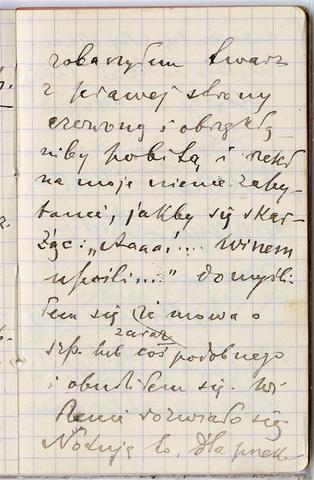 zobaczyłem twarz
z prawej strony
czerwoną i obrzękłą
niby pobitą i rzekł
na moje nieme zapy-
tanie, jakby się skar-
żąc: „Aaaa!... winem
upoili....” domyśli-
łem się że mowa o
zaraz
szp. lub coś podobnego
i obudziłem się. Wi-
dzenie rozwiało się
Notuję to, dla